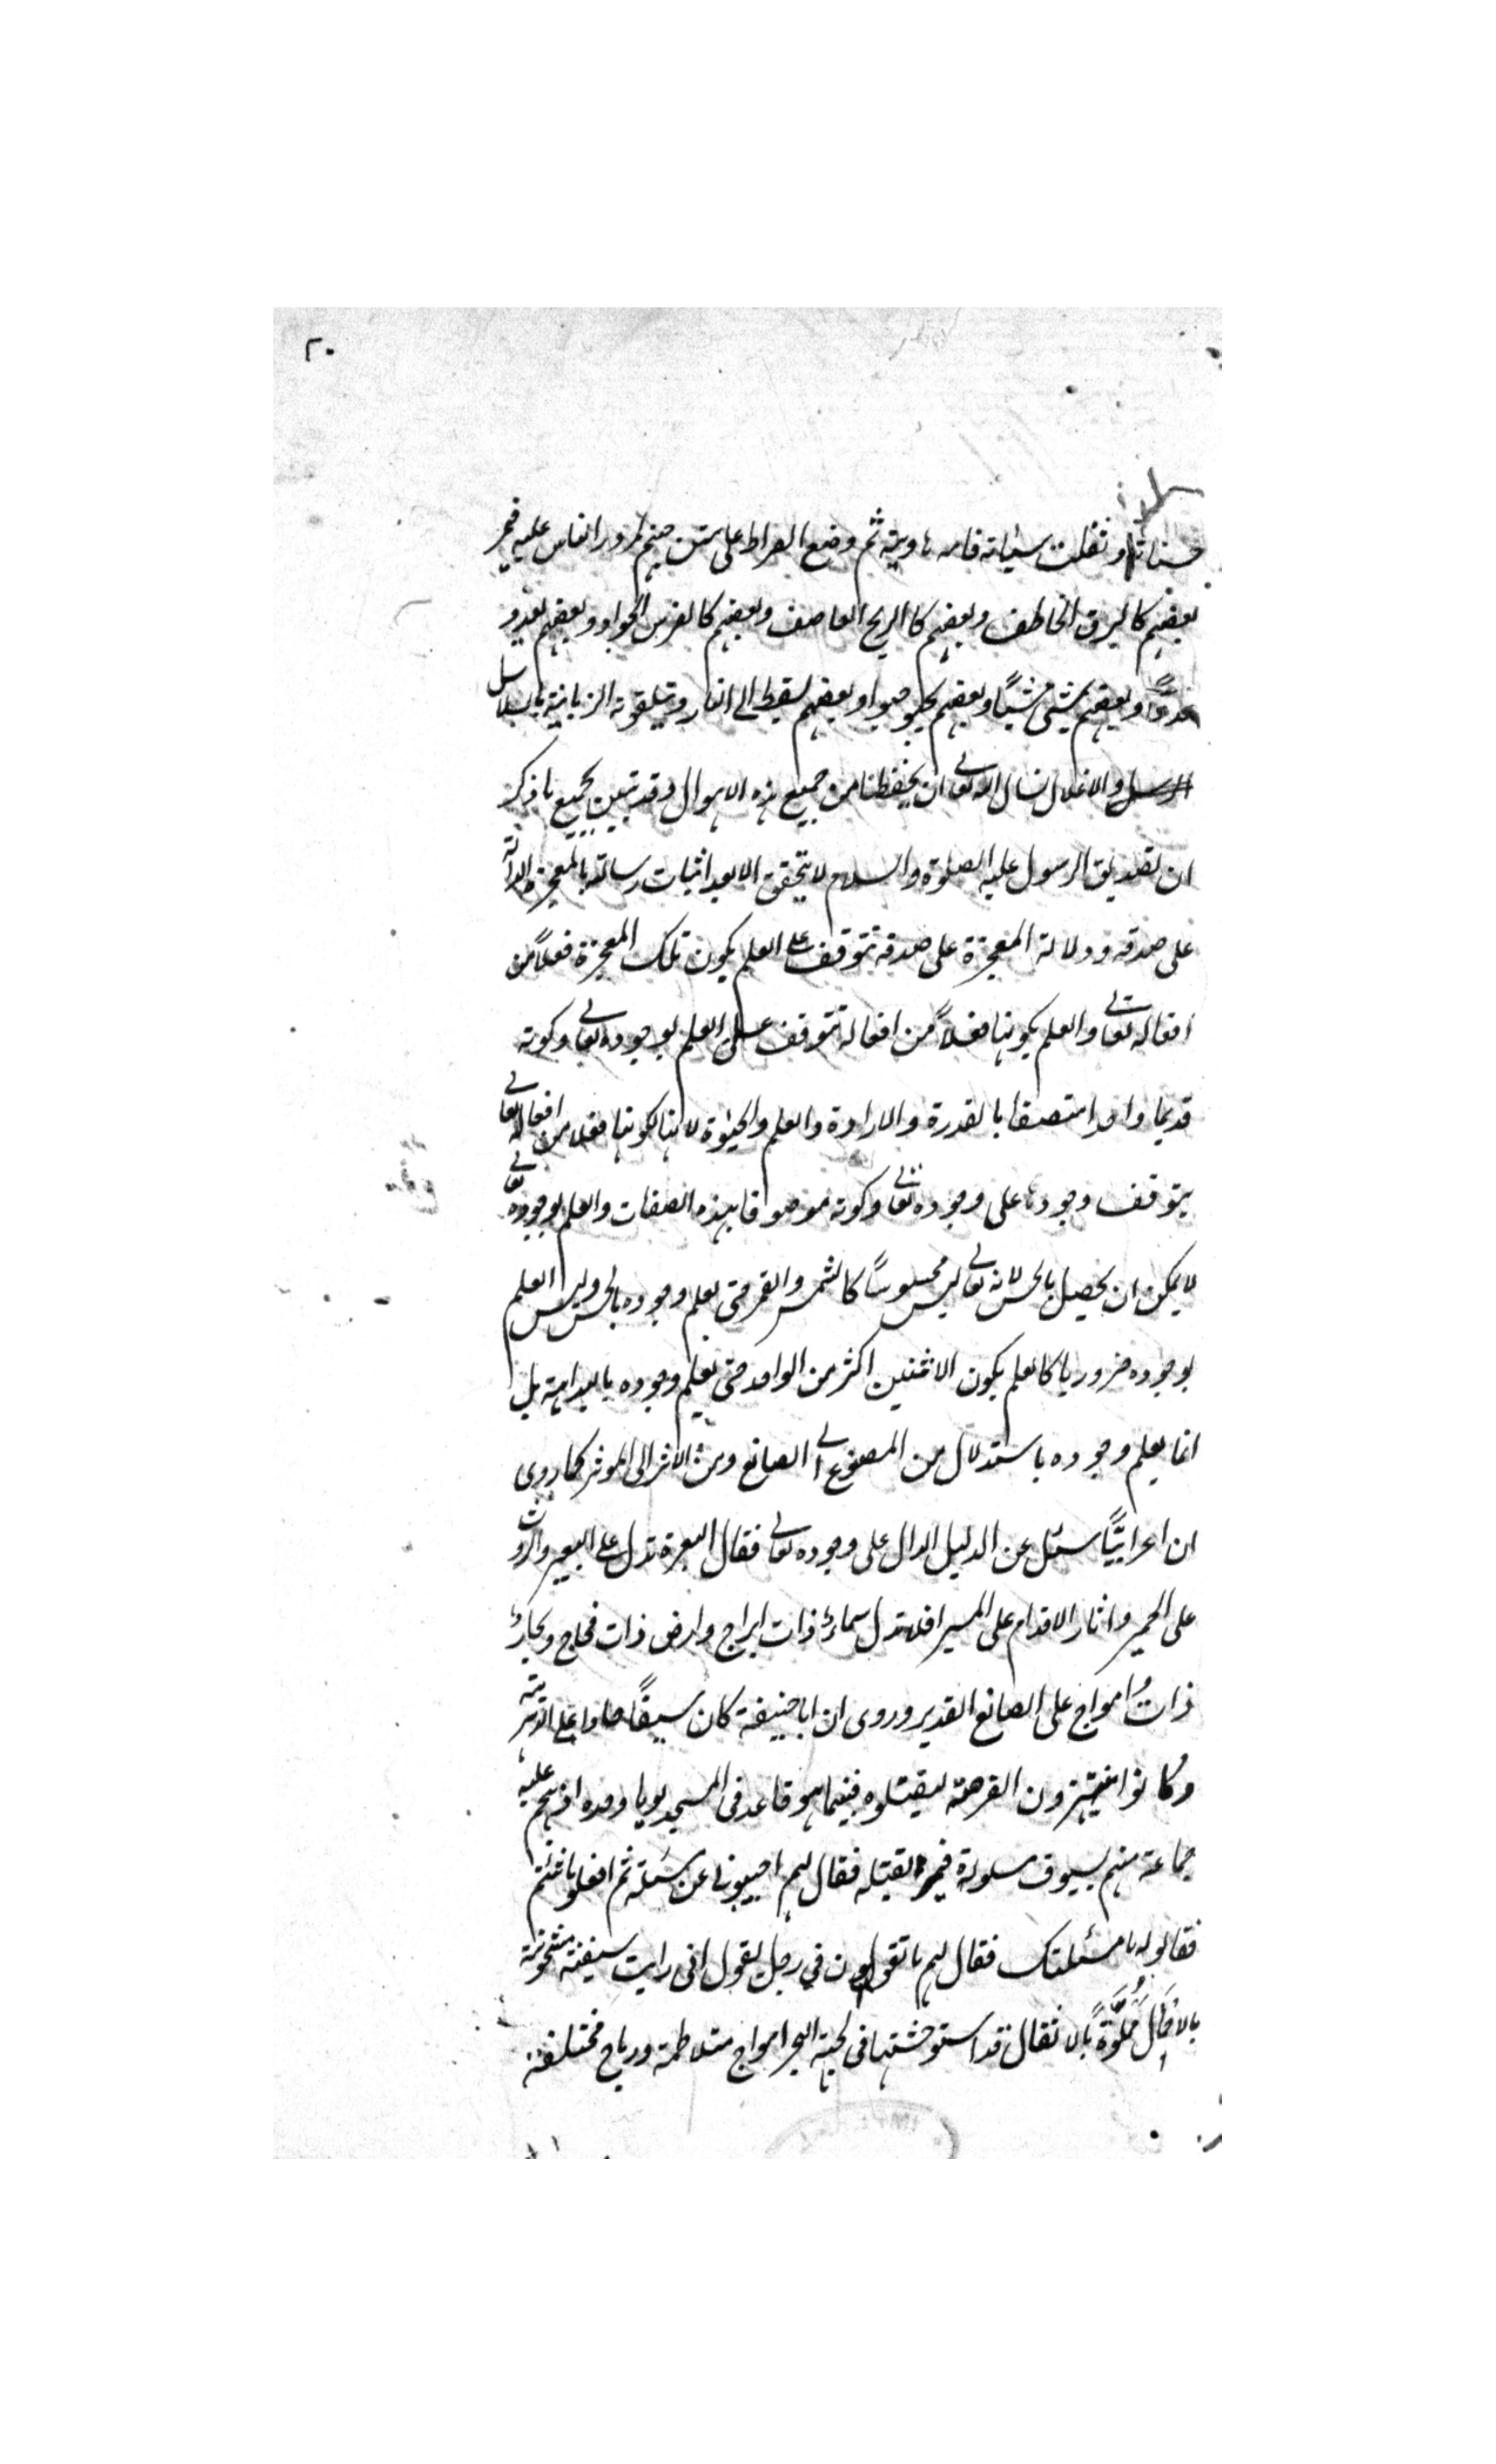 ٢٠
حسناته وثقلت سيئاته فامه هاوية ثم وضع الصراط على متن جهنم لمرور الناس عليه فيمر
بعضهم كالبرق الخاطف وبعضهم كالريح العاصف وبعضهم كالفرس الجواد وبعضهم يعدو
عدوًا وبعضهم يمشى مشيًا وبعضهم يحبو حبوا وبعضهم يسقط الى النار وتتلقونه الزبانية بالسلاسل
والاغلال نسال الله تعالى ان يحفظنا من جميع هذه الاهوال وقد تبين بجميع ما ذكر
ان تصديق الرسول عليه الصلوة والسلام لا يتحقق الا بعد اثبات رسالته بالمعجزة الدالة
على صدقه ودلالة المعجزة على صدقه تتوقف على العلم بكون تلك المعجزة فعلاً من
افعاله تعالى والعلم بكونها فعلاً من افعاله تتوقف على العلم بوجوده تعالى وكونه
قديما واحدا متصفا بالقدرة والارادة والعلم والحيوة لانها لكونها فعلا من افعاله تعالى
يتوقف وجودها على وجوده تعالى وكونه موصوفا بهذه الصفات والعلم بوجوده تعالى
لا يمكن ان يحصل بالحس لانه تعالى ليس محسوسًا كالشمس والقمر حتى يعلم وجوده بالحس وليس العلم
بوجوده ضروريا كالعلم بكون الاثنين اكثر من الواحد حتى يعلم وجوده بالبداهة بل
انما يعلم وجوده باستدلال من المصنوع الى الصانع ومن الاثر الى المؤثر كما روى
ان اعرابيًّا سئل عن الدليل الدال على وجوده تعالى فقال البعرة تدل على البعير والروث
على الحمير واثار الاقدام على المسير افلا تدل سماء ذات ابراج وارض ذات فجاج وبحار
ذات امواج على الصانع القدير وروى ان ابا حنيفة كان سيفًا حادا على الدهرية
وكانوا ينتهزون الفرصة ليقتلوه فبينما هو قاعد فى المسجد يوما وحده اذ هجم عليه
جماعة منهم بسيوف مسلولة لقتله فقال لهم اجيبونى عن مسئلة ثم افعلوا ما شئتم
فقالوا له ما مسئلتك فقال لهم ما تقولون في رجل يقول انى رايت سفينة مشحونة
بالاحمال مملوّةً بالاثقال قد استوحشتها فى لجة البحر امواج متلاطمة ورياح مختلفة